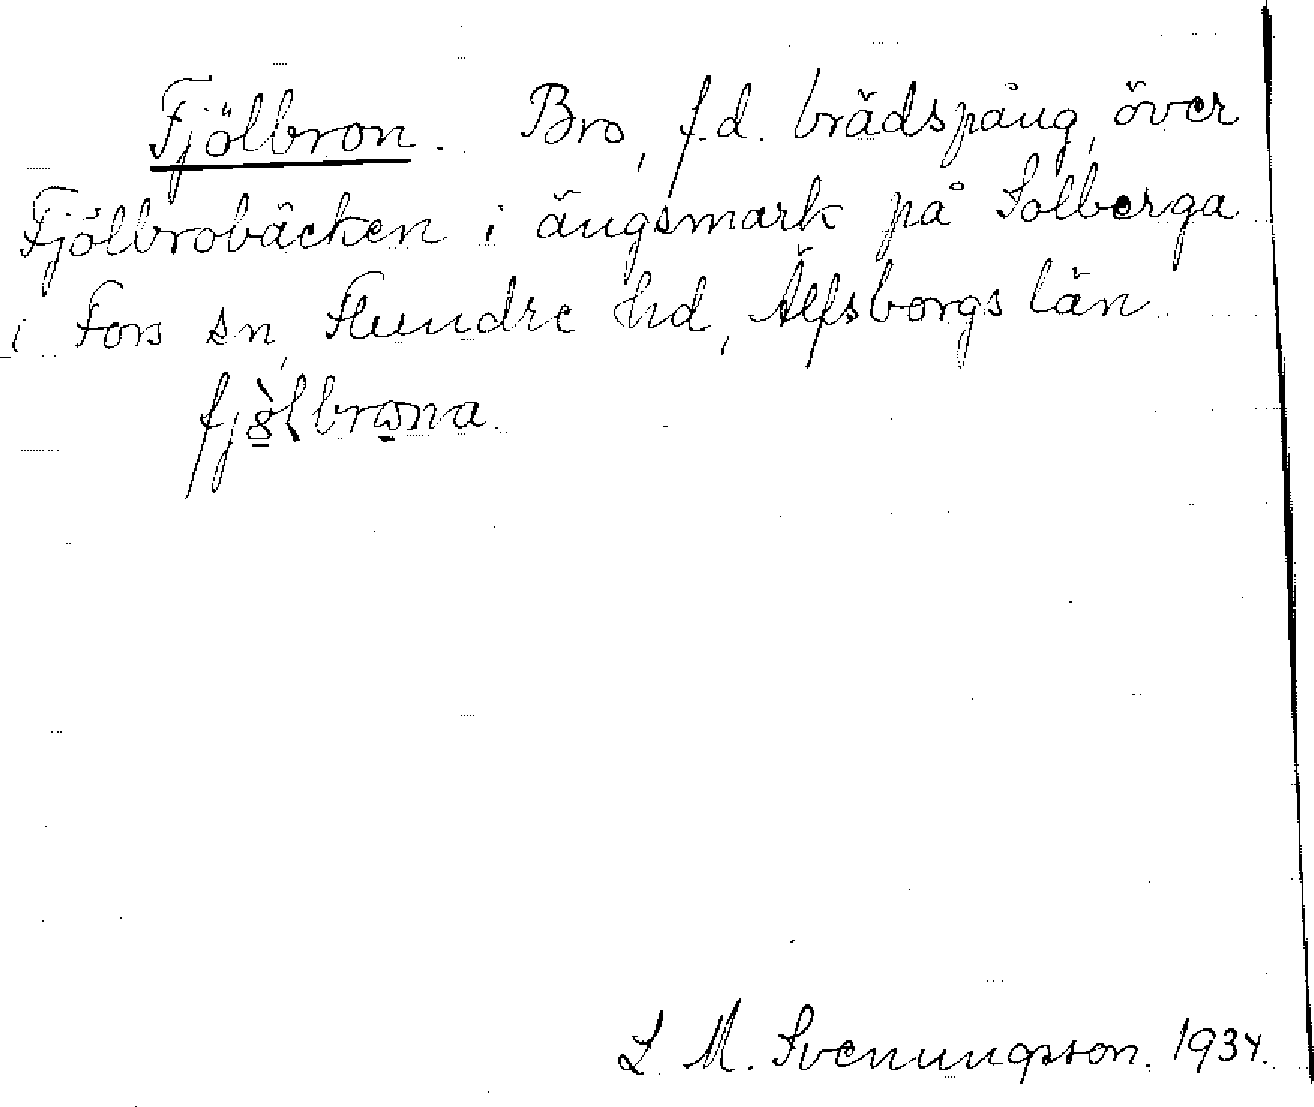 Fjölbron. Bro, f.d. brädspång, över
Fjölbrobäcken i ängsmark på Solberga
i Fors sn, Flundre hd, Älfsborgs län.
fjölbrona.
L. M. Svenungsson. 1934.